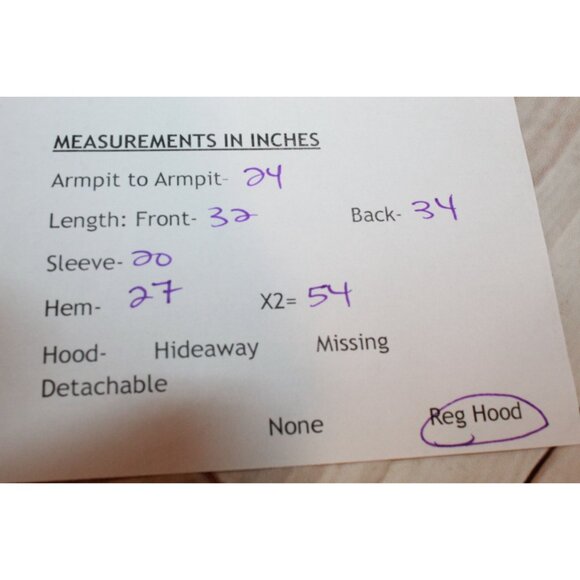 MEASUREMENTS IN INCHES
Armpit to Armpit- 24
Length: Front- 32 Back- 34
Sleeve- 20
Hem- 27 X2= 54
Hood- Hideaway Missing
Detachable
None Reg Hood